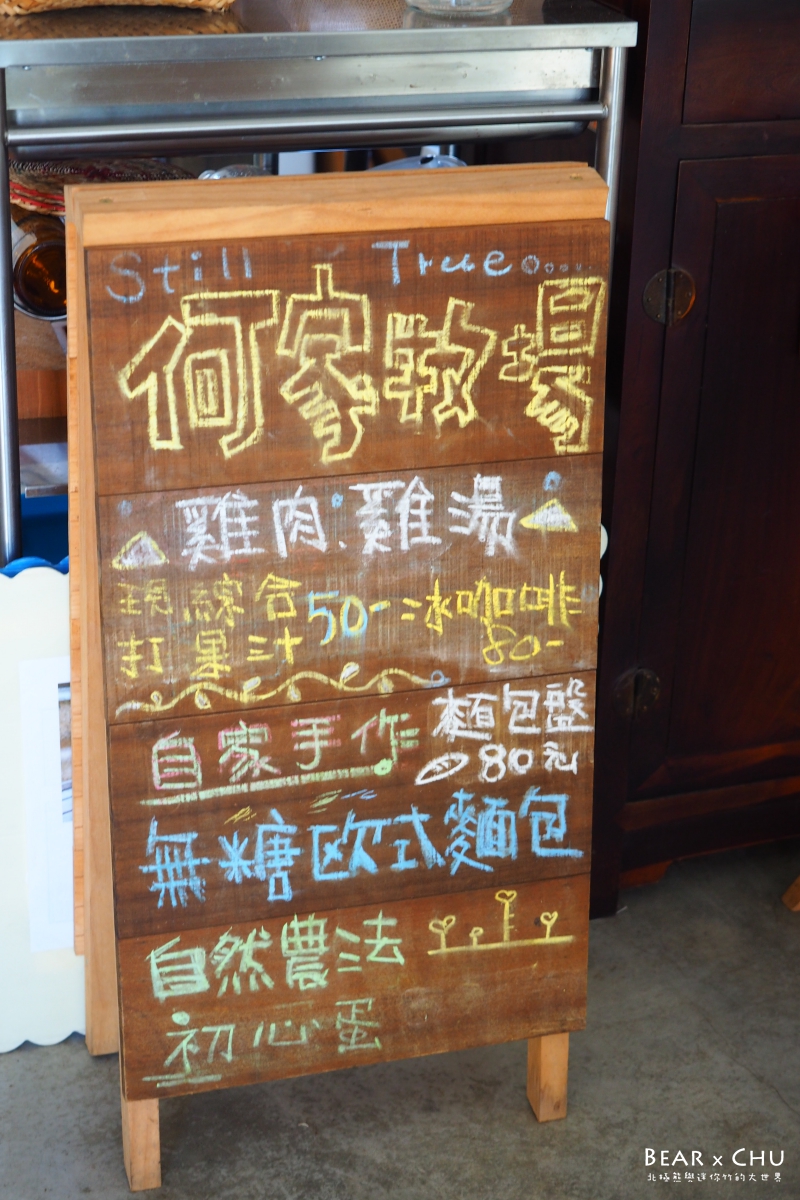 Still True....
何家牧場
雞肉、雞湯
現打綜合果汁 50-
冰咖啡 80-
自家手作
麵包盤 80元
無糖欧式麵包
自然農法
初心蛋
BEAR x CHU
北極熊與迷你竹的大世界